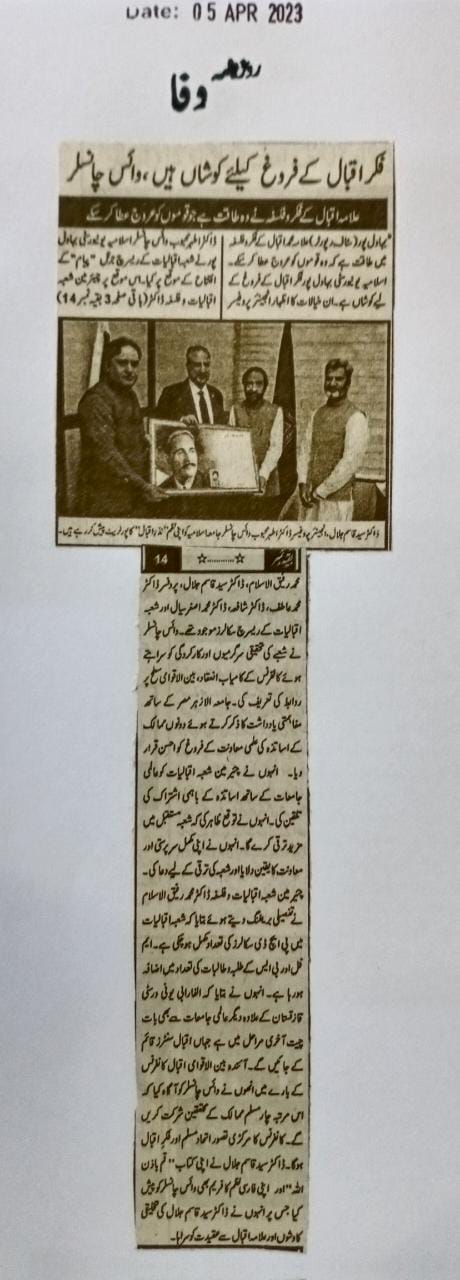 Date: 05 APR 2023
روزنامہ
وفا
فکر اقبال کے فروغ کیلئے کوشاں ہیں، وائس چانسلر
علامہ اقبال کے فکر و فلسفہ نے وہ طاقت ہے جو قوموں کو عروج عطا کرسکے
بہاول پور (سٹاف رپورٹر) علامہ محمد اقبال کے فکر و فلسفہ
میں طاقت ہے کہ وہ قوموں کو عروج عطا کرسکے۔
اسلامیہ یونیورسٹی بہاول پور فکر اقبال کے فروغ کے
لیے کوشاں ہے۔ ان خیالات کا اظہار انجینئر پروفیسر
ڈاکٹر اطہر محبوب وائس چانسلر اسلامیہ یونیورسٹی بہاول
پور نے شعبہ اقبالیات کے ریسرچ جرنل "پیام" کے
افتتاح کے موقع پر کیا۔ اس موقع پر چیئرمین شعبہ
اقبالیات و فلسفہ ڈاکٹر (باقی صفحہ 3 بقیہ نمبر 14)
ڈاکٹر سید قاسم جلال، انجینئر پروفیسر ڈاکٹر اطہر محبوب وائس چانسلر جامعہ اسلامیہ کو اپنی نظم "نذر اقبال" کا پورٹریٹ پیش کر رہے ہیں۔
بقیہ نمبر ☆............☆ 14
محمد رفیق الاسلام، ڈاکٹر سید قاسم جلال، پروفسر ڈاکٹر
محمد عاطف، ڈاکٹر شافعہ، ڈاکٹر محمد اصغر سیال اور شعبہ
اقبالیات کے ریسرچ سکالرز موجود تھے۔ وائس چانسلر
نے شعبے کی تحقیقی سرگرمیوں اور کارکردگی کو سراہتے
ہوئے کانفرنس کے کامیاب انعقاد، بین الاقوامی سطح پر
روابط کی تعریف کی۔ جامعہ الازہر مصر کے ساتھ
مفاہمتی یادداشت کا ذکر کرتے ہوئے دونوں ممالک
کے اساتذہ کی علمی معاونت کے فروغ کو احسن قرار
دیا۔ انہوں نے چیئرمین شعبہ اقبالیات کو عالمی
جامعات کے ساتھ اساتذہ کے باہمی اشتراک کی
تلقین کی۔ انہوں نے توقع ظاہر کی کہ شعبہ مستقبل میں
مزید ترقی کرے گا۔ انہوں نے اپنی مکمل سرپرستی اور
معاونت کا یقین دلایا اور شعبہ کی ترقی کے لیے دعا کی۔
چیئرمین شعبہ اقبالیات و فلسفہ ڈاکٹر محمد رفیق الاسلام
نے تفصیلی بریفنگ دیتے ہوئے بتایا کہ شعبہ اقبالیات
میں پی ایچ ڈی سکالرز کی تعداد مکمل ہوچکی ہے۔ ایم
فل اور بی ایس کے طلبہ و طالبات کی تعداد میں اضافہ
ہورہا ہے۔ انہوں نے بتایا کہ الفارابی یونی ورسٹی
قازقستان کے علاوہ دیگر عالمی جامعات سے بھی بات
چیت آخری مراحل میں ہے جہاں اقبال سنٹرز قائم
کے جائیں گے۔ آئندہ بین الاقوامی اقبال کانفرنس
کے بارے میں انھوں نے وائس چانسلر کو آگاہ کیا کہ
اس مرتبہ چار مسلم ممالک کے محققین شرکت کریں
گے۔ کانفرنس کا مرکزی تصور اتحاد مسلم اور فکر اقبال
ہوگا۔ ڈاکٹر سید قاسم جلال نے اپنی کتاب "قم باذن
اللہ" اور اپنی فارسی نظم کا فریم بھی وائس چانسلر کو پیش
کیا جس پر انہوں نے ڈاکٹر سید قاسم جلال کی تخلیقی
کاوشوں اور علامہ اقبال سے عقیدت کو سراہا۔